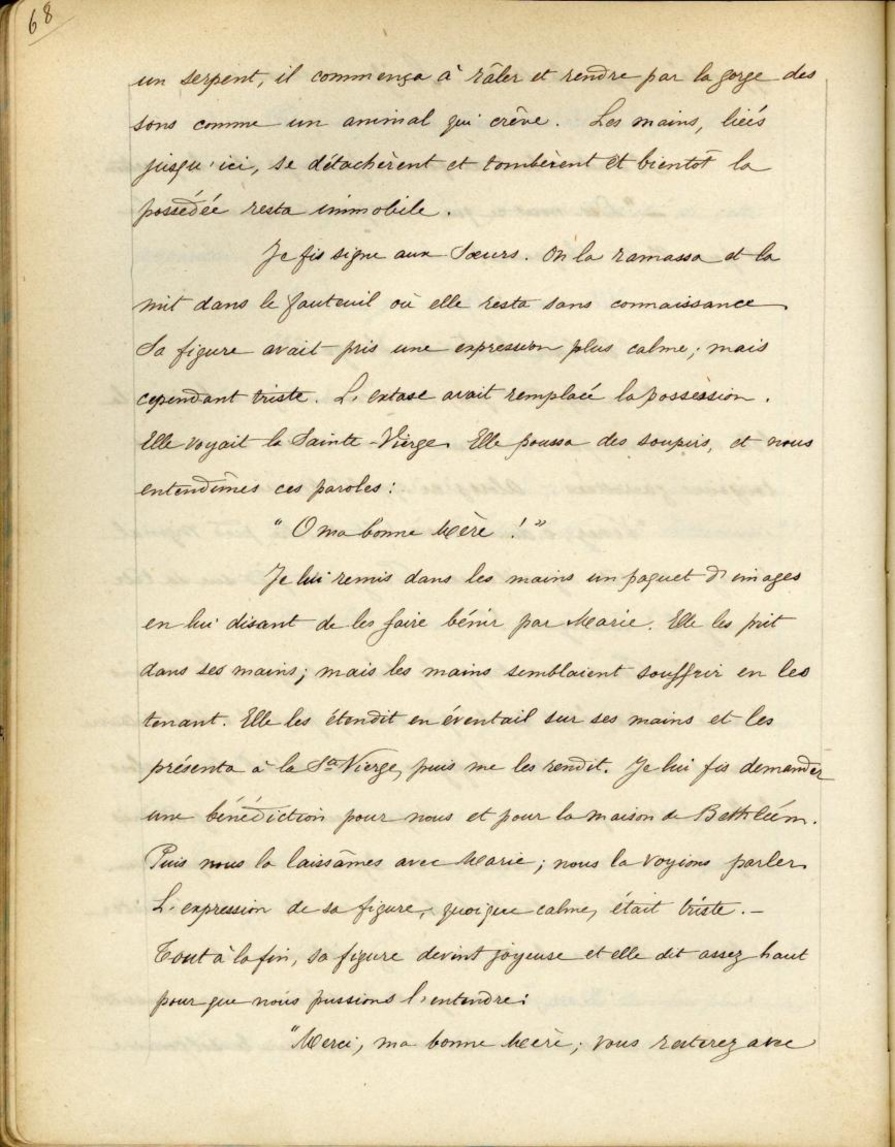 68
un serpent, il commença à râler et rendre par la gorge des
sons comme un animal qui crêve. Les mains, liées
jusqu'ici, se détachèrent et tombèrent et bientôt la
possédée resta immobile.
Je fis signe aux Sœurs. On la ramassa et la
mit dans le fauteuil où elle resta sans connaissance.
Sa figure avait pris une expression plus calme; mais
cependant triste. L'extase avait remplacé la possession.
Elle voyait la Sainte-Vierge. Elle poussa des soupirs, et nous
entendîmes ces paroles:
"O ma bonne Mère !"
Je lui remis dans les mains un paquet d'images
en lui disant de les faire bénir par Marie. Elle les prit
dans ses mains; mais les mains semblaient souffrir en les
tenant. Elle les étendit en éventail sur ses mains et les
présenta à la Sa Vierge, puis me les rendit. Je lui fis demander
une bénédiction pour nous et pour la maison de Bethléem.
Puis nous la laissâmes avec Marie; nous la voyions parler.
L'expression de sa figure, quoique calme, était triste.-
Tout à la fin, sa figure devint joyeuse et elle dit assez haut
pour que nous pussions l'entendre:
"Merci, ma bonne Mère; vous resterez avec